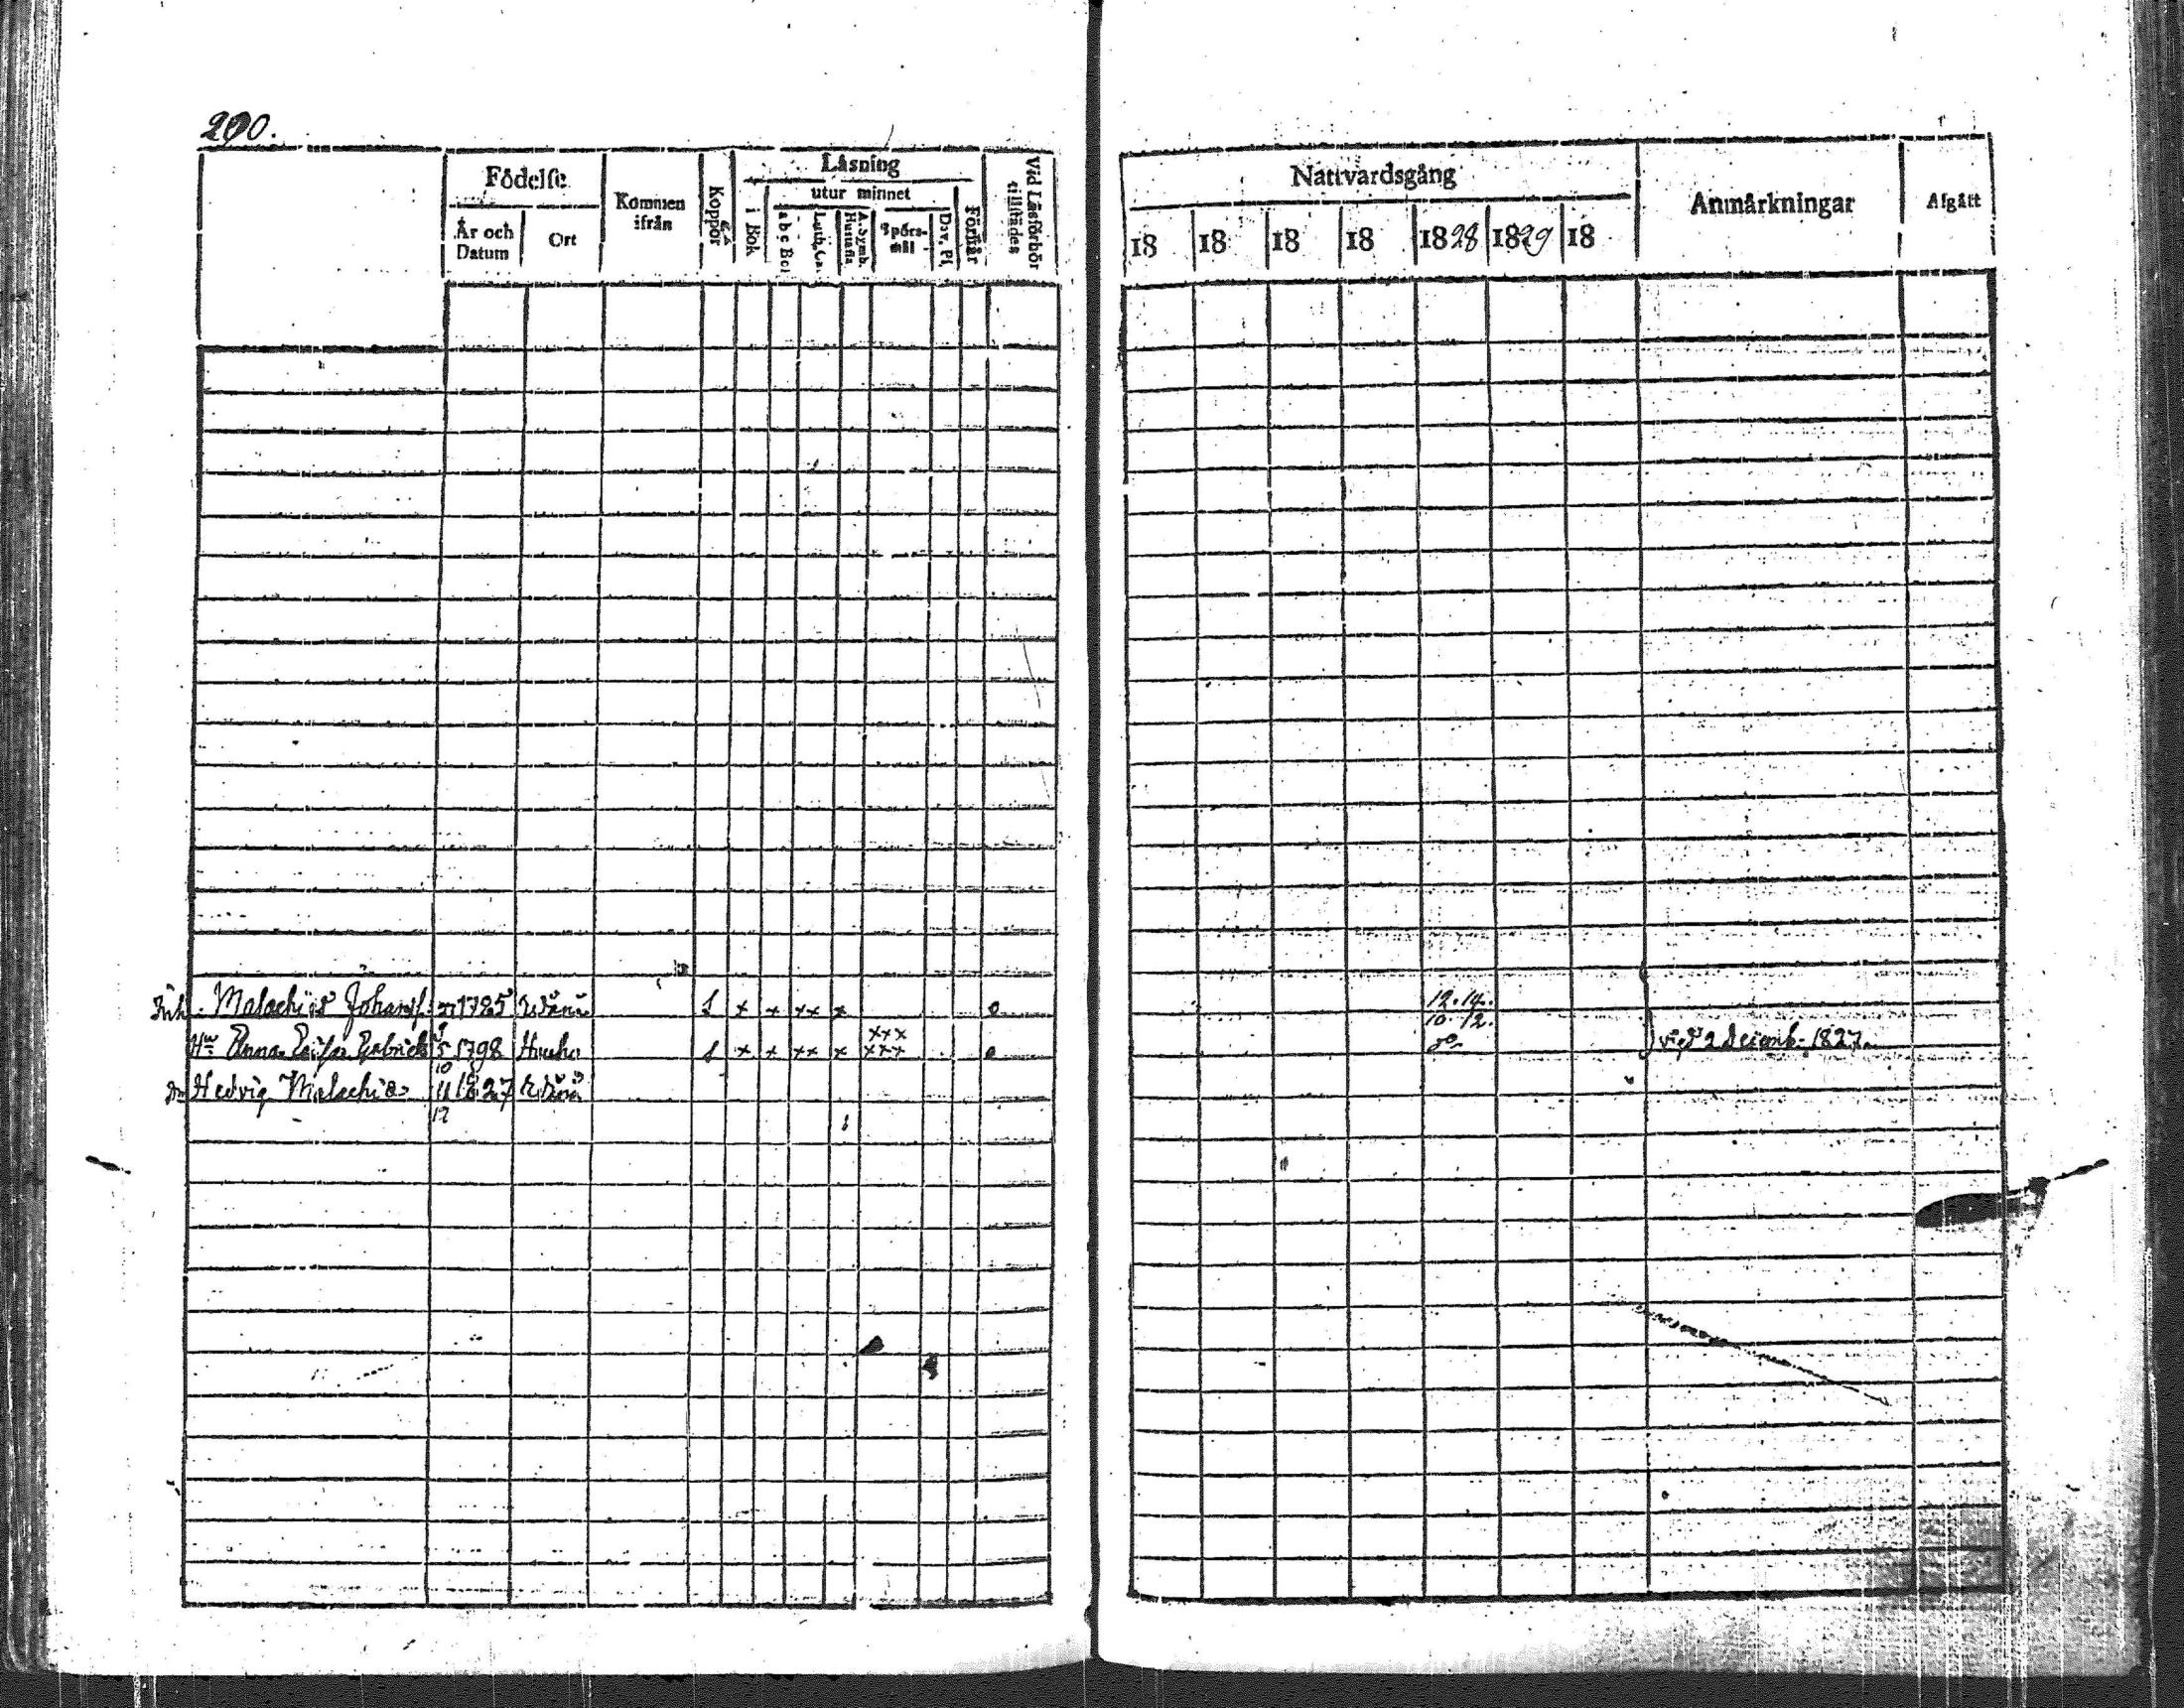 290.
Födelse
År och Datum
Ort
Kommen ifrån
Koppor
Läsning
i Bok
utur minnet
abc Bok
Luth. Ca.
A. Symb. Hustafla
Spörsmål
Dav. Ps.
Förstår
Vid Läsförhör tillstädes
Nattvardsgång
18 18 18 18 1828 1829 18
Anmärkningar
Afgått
Inh. Malachias Johansf. 1785 s x x xx x 12.14.
10.12.
Hu Anna Gabriels 5 1798 s x x xx x xxx xxx do vigd 2 Decemb. 1827.
10
Hedvig Malachia 11 1827
12